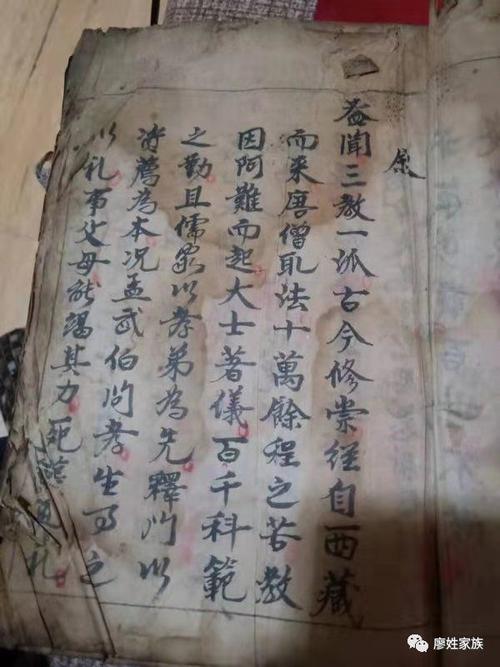 蓋聞三教一派古今修崇經自西藏
而来唐僧取法十萬餘程之苦教
因阿難而起大士著儀百千科範
之勤且儒家以孝弟為先釋门以
濟薦為本况孟武伯问孝生事之
以礼事父母能竭其力死
礼
廖姓家族